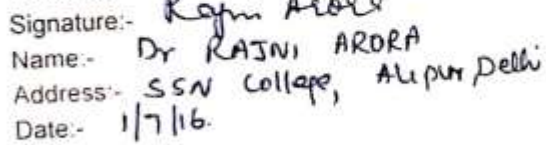 Signature:- Rajni Arora
Name:- Dr RAJNI ARORA
Address:- SSN College, Alipur Delhi
Date:- 1/7/16.